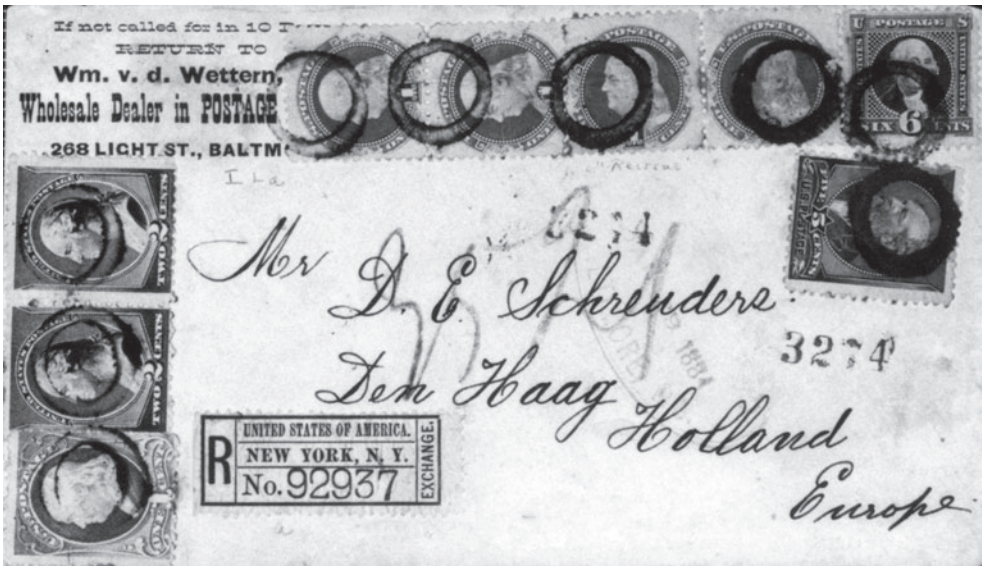 If not called for in 10
RETURN TO
Wm. v. d. Wettern,
Wholesale Dealer in POSTAGE
268 LIGHT ST., BALTM
U POSTAGE S
SIX 6 CENTS
TWO 2 CENTS
TWO 2 CENTS
3274
Mr
D. E. Schreuders
3274
1884
Den Haag
Holland
Europe
R
UNITED STATES OF AMERICA.
NEW YORK, N. Y.
No. 92937
EXCHANGE.